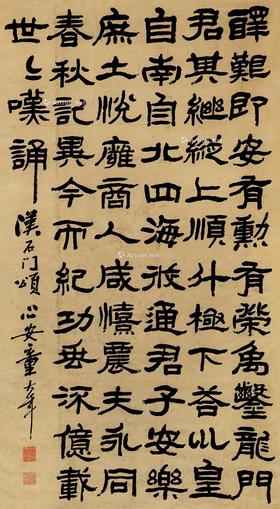 釋艱即安有勳有榮禹鑿龍門
君其繼縱上順斗極下荅巛皇
自南自北四海攸通君子安樂
庶士悅廱商人咸憘農夫永同
春秋記異今而紀功垂流億載
世〻嘆誦
漢石门頌 心安童大年